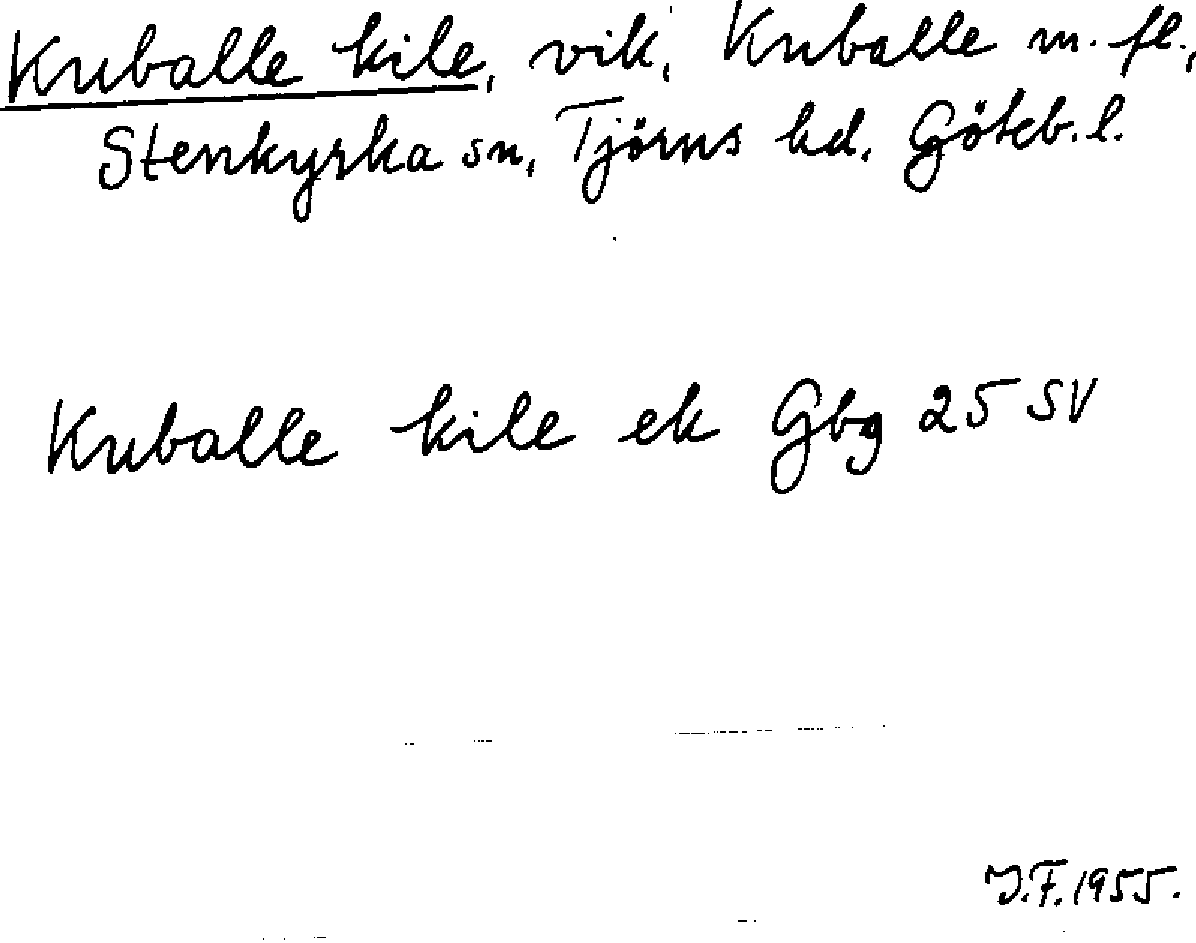 Kuballe kile, vik, Kuballe m. fl.,
Stenkyrka sn, Tjörns hd, Göteb. l.
Kuballe kile ek Gbg 25 SV
J.F. 1955.